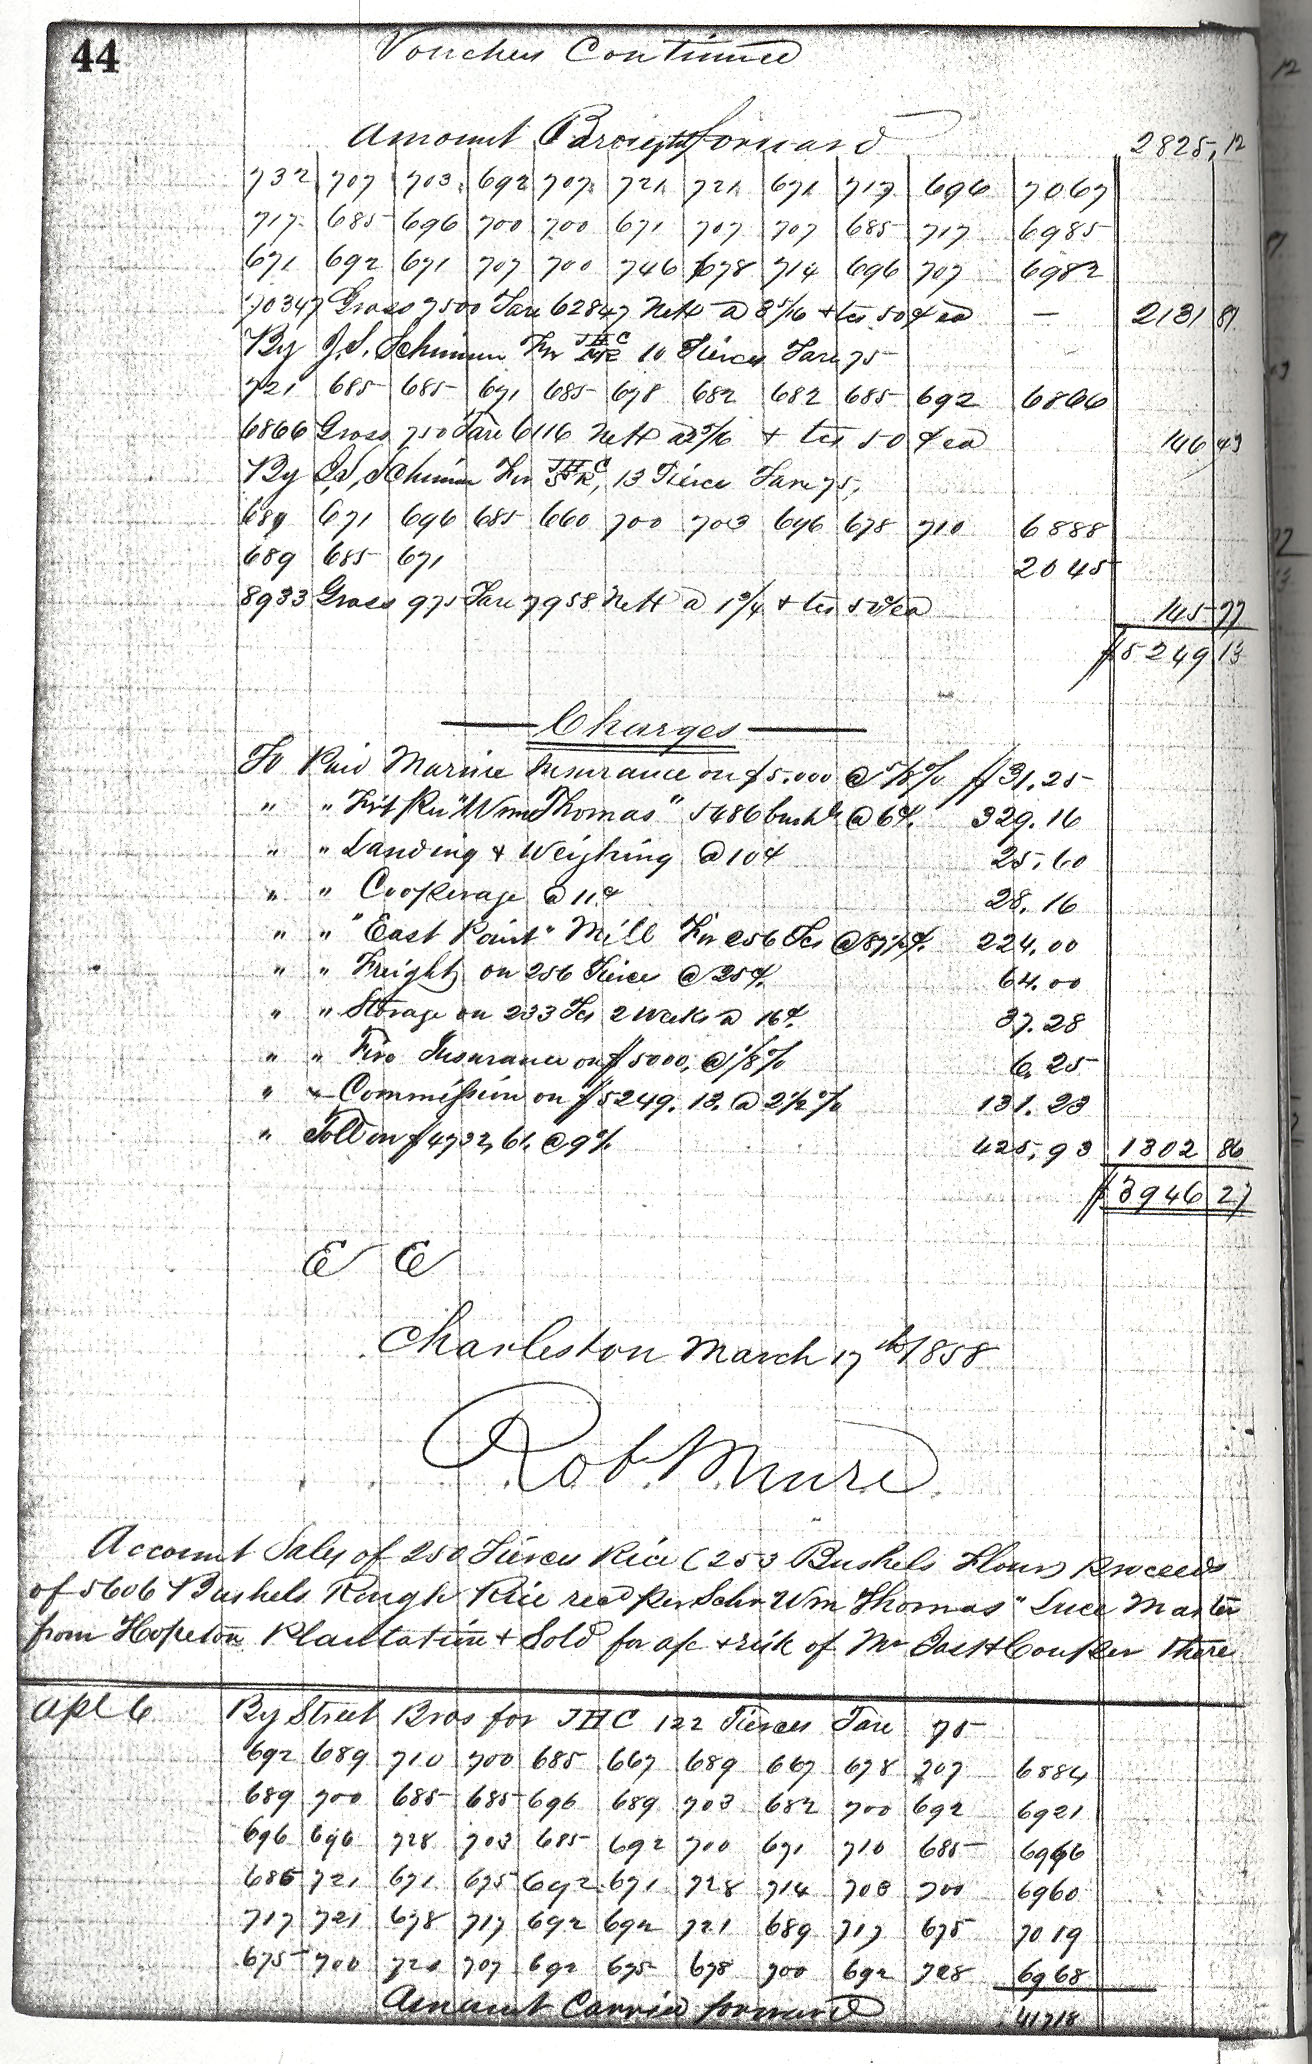 44
Vouchers Continued
Amount Brought forward 2825,12
732 707 703 692 707 721 721 671 717 696 7067
717 685 696 700 700 671 707 707 685 717 6985
671 692 671 707 700 746 678 714 696 707 6982
70347 Gross 7500 Tare 62847 Nett a 3 5/16 + tcs 50¢ ea — 2131 87
By J. S. Schirmer for 10 Tierces Tare 75
721 685 685 671 685 678 682 682 685 692 6866
6866 Gross 750 Tare 6116 Nett a 2 5/16 + tcs 50 ¢ ea 146 43
By J. S. Schirmer for 13 Tierce Tare 75,
689 671 696 685 660 700 703 696 678 710 6888
689 685 671 2045
8933 Gross 975 Tare 7958 Nett a 1 3/4 + tcs 50¢ ea 145 77
$5249 13
Charges
To Paid Marine Insurance on $5.000 @ 5/8 % $31.25
" " Frt Per "Wm Thomas" 5486 bushls @ 6¢ 329.16
" " Landing & Weighing @ 10¢ 25.60
" " Cooperage @ 11¢ 28.16
" " "East Point" Mill for 256 Tcs @ 87½¢ 224.00
" " Freight on 256 Tierce @ 25¢ 64.00
" " Storage on 233 Tcs 2 Weeks a 16¢ 37.28
" " Fire Insurance on $5000, @ 1/8 % 6.25
" " Commission on $5249.13. @ 2½ % 131.23
" Toll on $4732,61. @ 9% 425,93 1302 86
$3946 27
E E
Charleston March 17th 1858
Rob. Mure
Account Sales of 250 Tierces Rice (253 Bushels Flour) proceeds
of 5606 Bushels Rough Rice recd per Schr Wm Thomas" Luce Master
from Hopeton Plantation & Sold for a/c & risk of Mr Jas H Couper There
Apl 6 By Street Bros for JHC 122 Tierces Tare 75
692 689 710 700 685 667 689 667 678 707 6884
689 700 685 685 696 689 703 682 700 692 6921
696 696 728 703 685 692 700 671 710 685 6966
685 721 671 675 692 671 728 714 703 700 6960
717 721 678 717 692 692 721 689 717 675 7019
675 700 721 707 692 675 678 700 692 728 6968
Amount Carried forward 41718